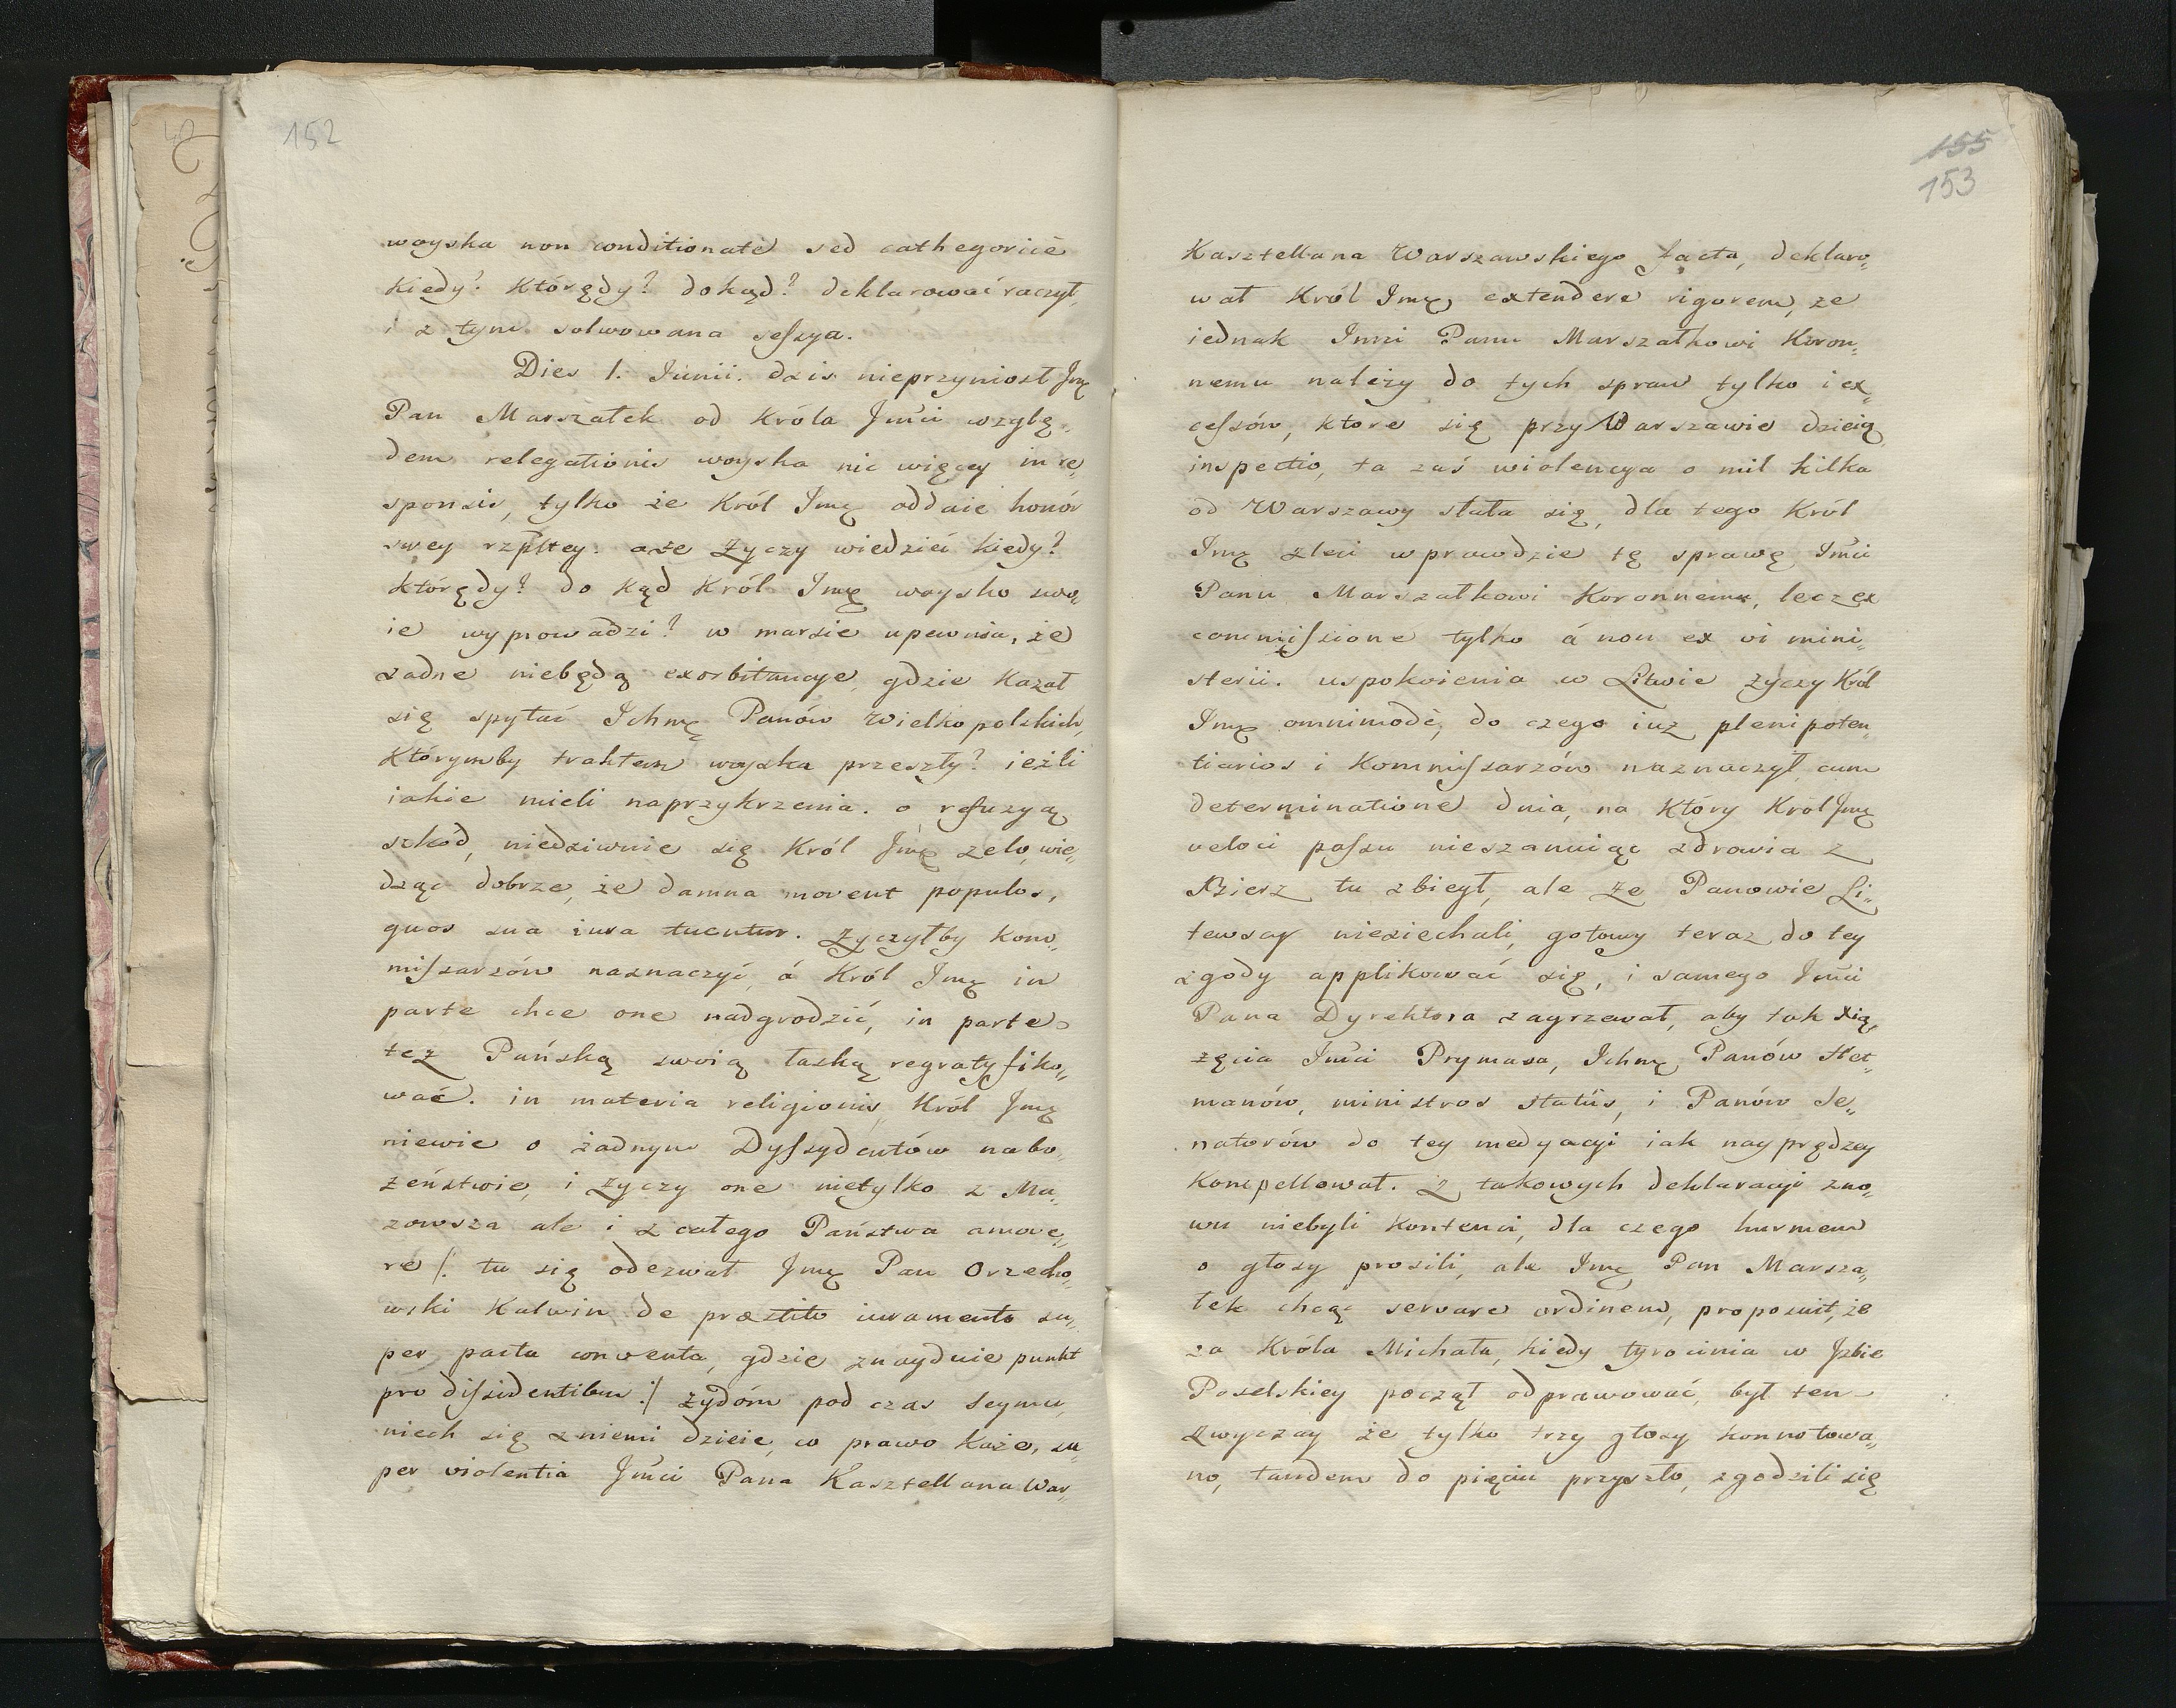 152
woyska non conditionate sed cathegoricè
kiedy? którędy? dokąd? deklarować raczył,
i z tym solwowana seſsya.
Dies 1. Junii. dzis nieprzyniosł Jmę
Pan Marszałek od Króla Jmći wzglę„
dem relegationis woyska nic więcey in re„
sponsis, tylko że Król Jmę oddaie honór
swey rzpltey: aże życzy wiedzieć kiedy?
którędy? do kąd Król Jmę woysko swo„
ie wyprowadzi? w marsie upewnia, że
żadne niebędą exorbitancye, gdzie kazał
się spytać Ichmę Panów Wielkopolskich,
którymby traktem woyska przeszły? ieżli
iakie mieli naprzykrzenia. o refuzyą
szkód, niedziwnie się Król Jmę zelo, wie„
dząc dobrze, że damna movent populos,
quos sua iura tuentur. życzyłby kom„
miſsarzów naznaczyć, á Król Jmę in
parte chce one nadgrodzić, in parte
też Pańską swoią łaską regratyfiko„
wać. in materia religionis, Król Jmę
niewie o żadnym Dyſsydentów nabo„
żeństwie, i życzy one nietylko z Ma„
zowsza ale i z całego Państwa amove„
re /: tu się odezwał Jmę Pan Orzecho„
wski Kalwin de præstito iuramento su„
per pacta conventa, gdzie znayduie punkt
pro diſsidentibus :/ żydóm pod czas Seymu,
niech się z niemi dzieie, co prawo każe, su„
per violentia Jmći Pana Kasztellana War„
155
153
Kasztellana Warszawskiego facta, deklaro„
wał Król Jmę extendere rigorem, że
iednak Jmći Panu Marszałkowi Koron„
nemu należy do tych spraw tylko i ex„
ceſsów, ktore się przy Warszawie dzieią
inspectio, ta zaś wiolencya o mil kilka
od Warszawy stała się, dla tego Król
Jmę zleci wprawdzie tę sprawę Jmći
Panu Marszałkowi Koronnemu, lecz ex
commiſsione tylko á non ex vi mini„
sterii. uspokoienia w Litwie życzy Król
Jmę omnimodè, do czego iuż plenipoten„
tiarios i Kommiſsarzów naznaczył, cum
determinatione dnia, na który Król Jmę
veloci paſsu nieszanuiąc zdrowia z
Bierz tu zbiegł, ale że Panowie Li„
tewscy nieziechali, gotowy teraz do tey
zgody applikować się, i samego Jmći
Pana Dyrektora zagrzewał, aby tak Xią„
żęcia Jmći Prymasa, Ichmę Panów Het„
manów, ministros statûs, i Panów Se„
natorów do tey medyacyi iak nayprędzey
kompellował. Z takowych deklaracyi zno„
wu niebyli kontenci, dla czego hurmem
o głosy prosili, ale Jmę Pan Marsza„
łek chcąc servare ordinem, proposuit, że
za Króla Michała, kiedy tyrocinia w Jzbie
Poselskiey począł odprawować, był ten
zwyczay że tylko trzy głosy konnotowa„
no, tandem do pięciu przyszło, zgodzili się